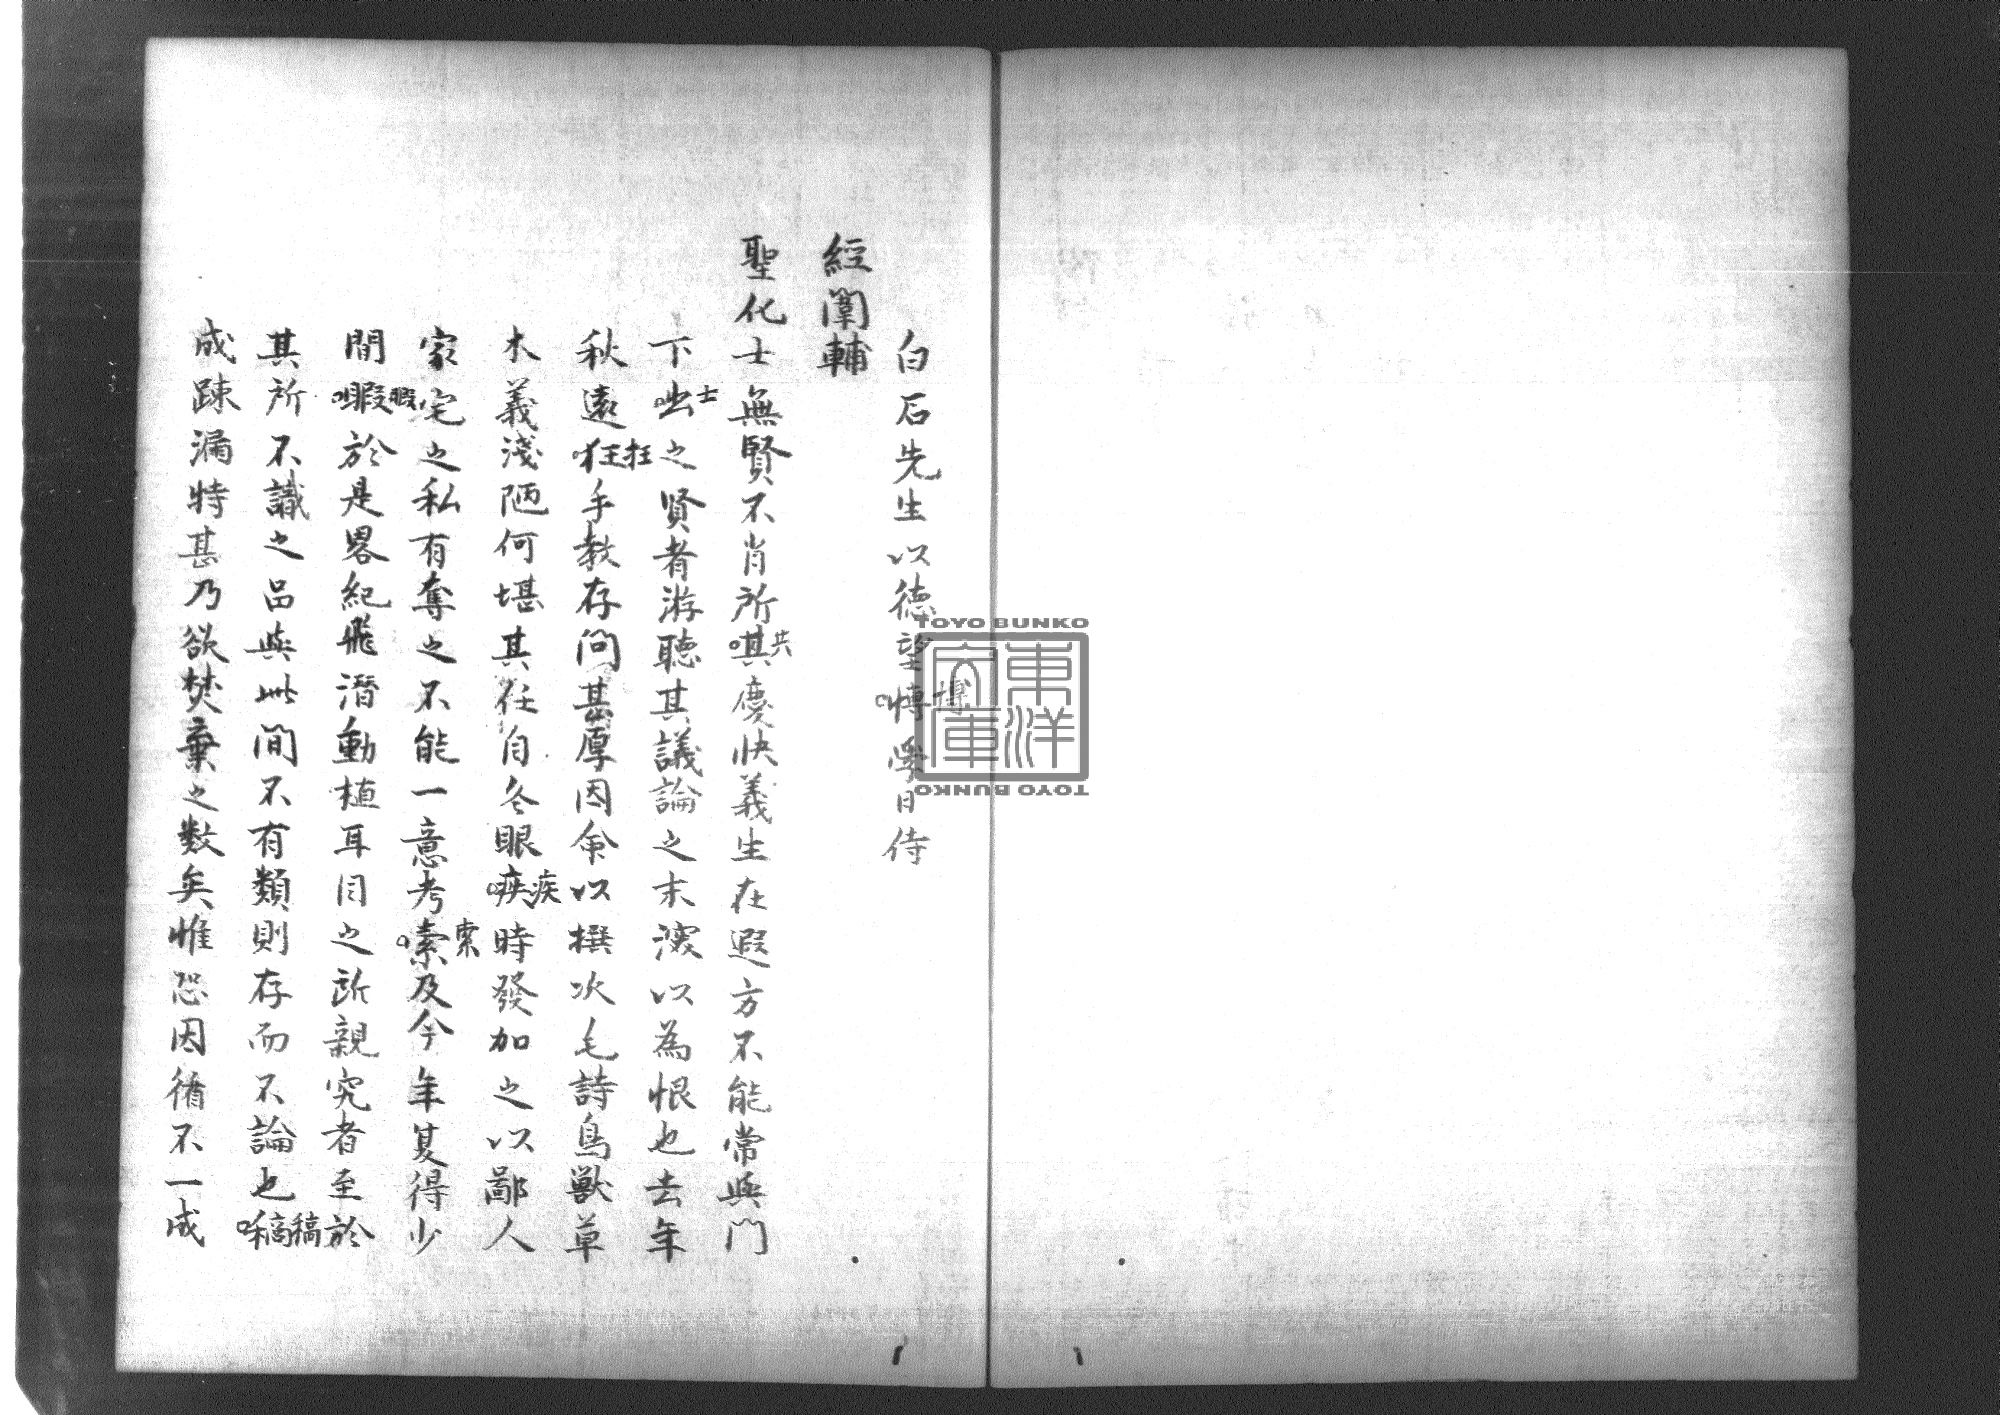 白石先生以德望愽博學日侍
經闈輔
聖化士無賢不肖所唭共慶快義生在遐方不能常與門
下㕀士之賢者游聽其議論之末深以為恨也去年
秋遠狂枉手教存問甚厚因命以撰次毛詩鳥獸草
木義淺陋何堪其任自冬眼疾時發加之以鄙人
家宅之私有奪之不能一意考嗦索及今年夏得少
間暇於是畧紀飛潛動植耳目之所親究者至於
其所不識之品與此間不有類則存而不論也稿
成踈漏特甚乃欲焚棄之數矣惟恐因循不一成
TOYO BUNKO
東洋文庫
TOYO BUNKO